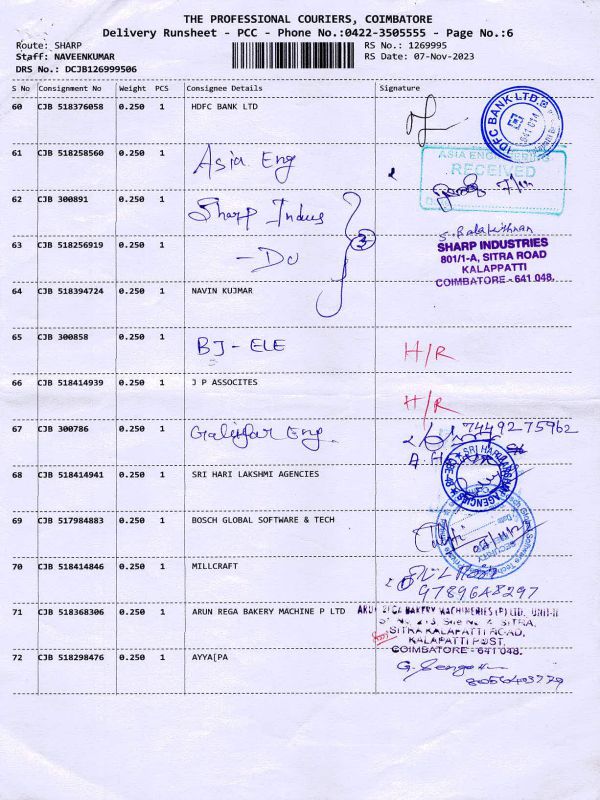 THE PROFESSIONAL COURIERS, COIMBATORE
Delivery Runsheet - PCC - Phone No.:0422-3505555 - Page No.:6
Route: SHARP RS No.: 1269995
Staff: NAVEENKUMAR RS Date: 07-Nov-2023
DRS No.: DCJB126999506
S No Consignment No Weight PCS Consignee Details Signature
60 CJB 518376058 0.250 1 HDFC BANK LTD
HDFC BANK LTD
641 014
61 CJB 518258560 0.250 1 Asia Eng
ASIA ENGINEERING
RECEIVED
62 CJB 300891 0.250 1 Sharp Indus
3
63 CJB 518256919 0.250 1 - Do
S. Balakrishnan
SHARP INDUSTRIES
801/1-A, SITRA ROAD
KALAPPATTI
COIMBATORE - 641 048.
64 CJB 518394724 0.250 1 NAVIN KUJMAR
65 CJB 300858 0.250 1 BJ - ELE H/R
66 CJB 518414939 0.250 1 J P ASSOCITES H/R
67 CJB 300786 0.250 1 Eng. 7449275962
68 CJB 518414941 0.250 1 SRI HARI LAKSHMI AGENCIES
69 CJB 517984883 0.250 1 BOSCH GLOBAL SOFTWARE & TECH
SECURITY
70 CJB 518414846 0.250 1 MILLCRAFT
9789648297
71 CJB 518368306 0.250 1 ARUN REGA BAKERY MACHINE P LTD
ARUN REGA BAKERY MACHINERIES (P) LTD. UNIT-II
SITRA KALAPATTI ROAD,
KALAPATTI POST,
COIMBATORE - 641 048.
72 CJB 518298476 0.250 1 AYYA[PA
8056403779